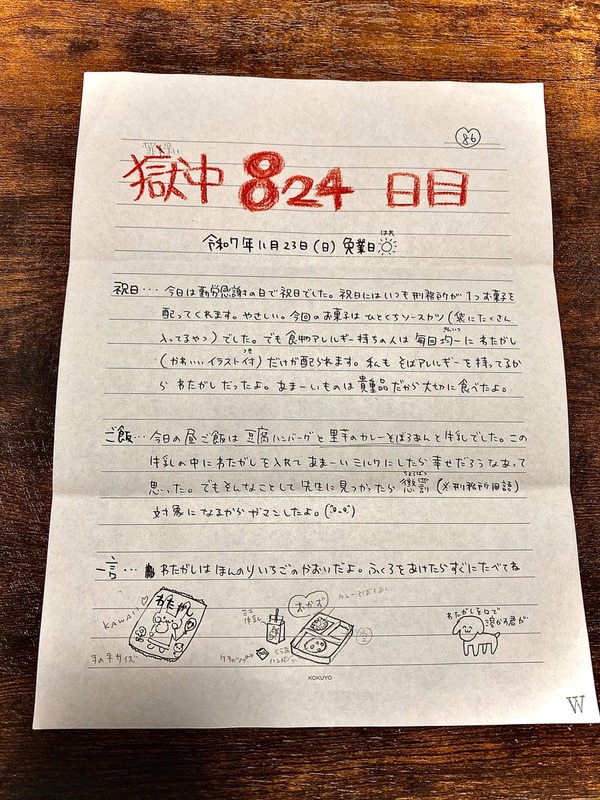 86
獄中824日目
はれ
令和7年11月23日(日) 免業日
祝日… 今日は勤労感謝の日で祝日でした。祝日にはいつも刑務所が1つお菓子を
配ってくれます。やさしい。今回のお菓子はひとくちソースカツ(袋にたくさん
入ってるやつ)でした。でも食物アレルギー持ちの人は毎回均一にわたがし
(かわいいイラスト付)だけが配られます。私もそばアレルギーを持ってるか
ら わたがしだったよ。あまーいものは貴重品だから大切に食べたよ。
ご飯… 今日の昼ご飯は豆腐ハンバーグと里芋のカレーそぼろあんと牛乳でした。この
牛乳の中にわたがしを入れてあまーいミルクにしたら幸せだろうなあって
ちょうばつ
思った。でもそんなことして先生に見つかったら懲罰(※刑務所用語)
対象になるからガマンしたよ。
一言… わたがしはほんのりいちごのかおりだよ。ふくろをあけたらすぐにたべてね
KAWAII
わたがし
手の平サイズ
ミニ
牛乳
おかず
カレーそぼろあん
ケチャップ
とうふ
ハンバーグ
わたがしを口で
溶かす君が
KOKUYO
W